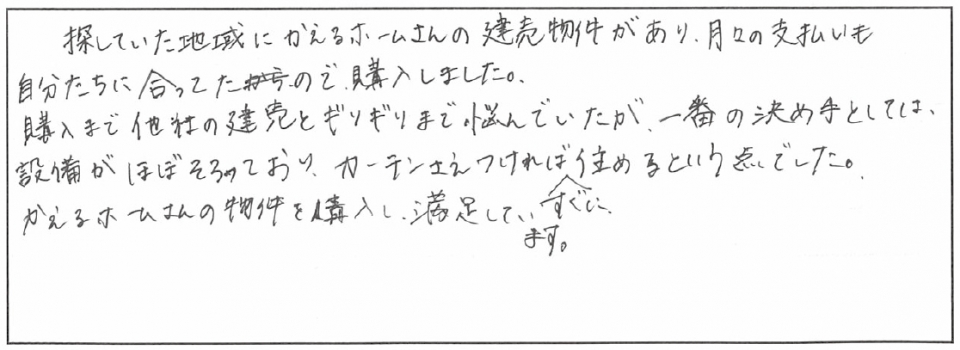 探していた地域にかえるホームさんの建売物件があり、月々の支払いも
自分たちに合ってたので、購入しました。
購入まで他社の建売とギリギリまで悩んでいたが、一番の決め手としては、
設備がほぼそろっており、カーテンさえつければすぐに住めるという点でした。
かえるホームさんの物件を購入し、満足してい
ます。